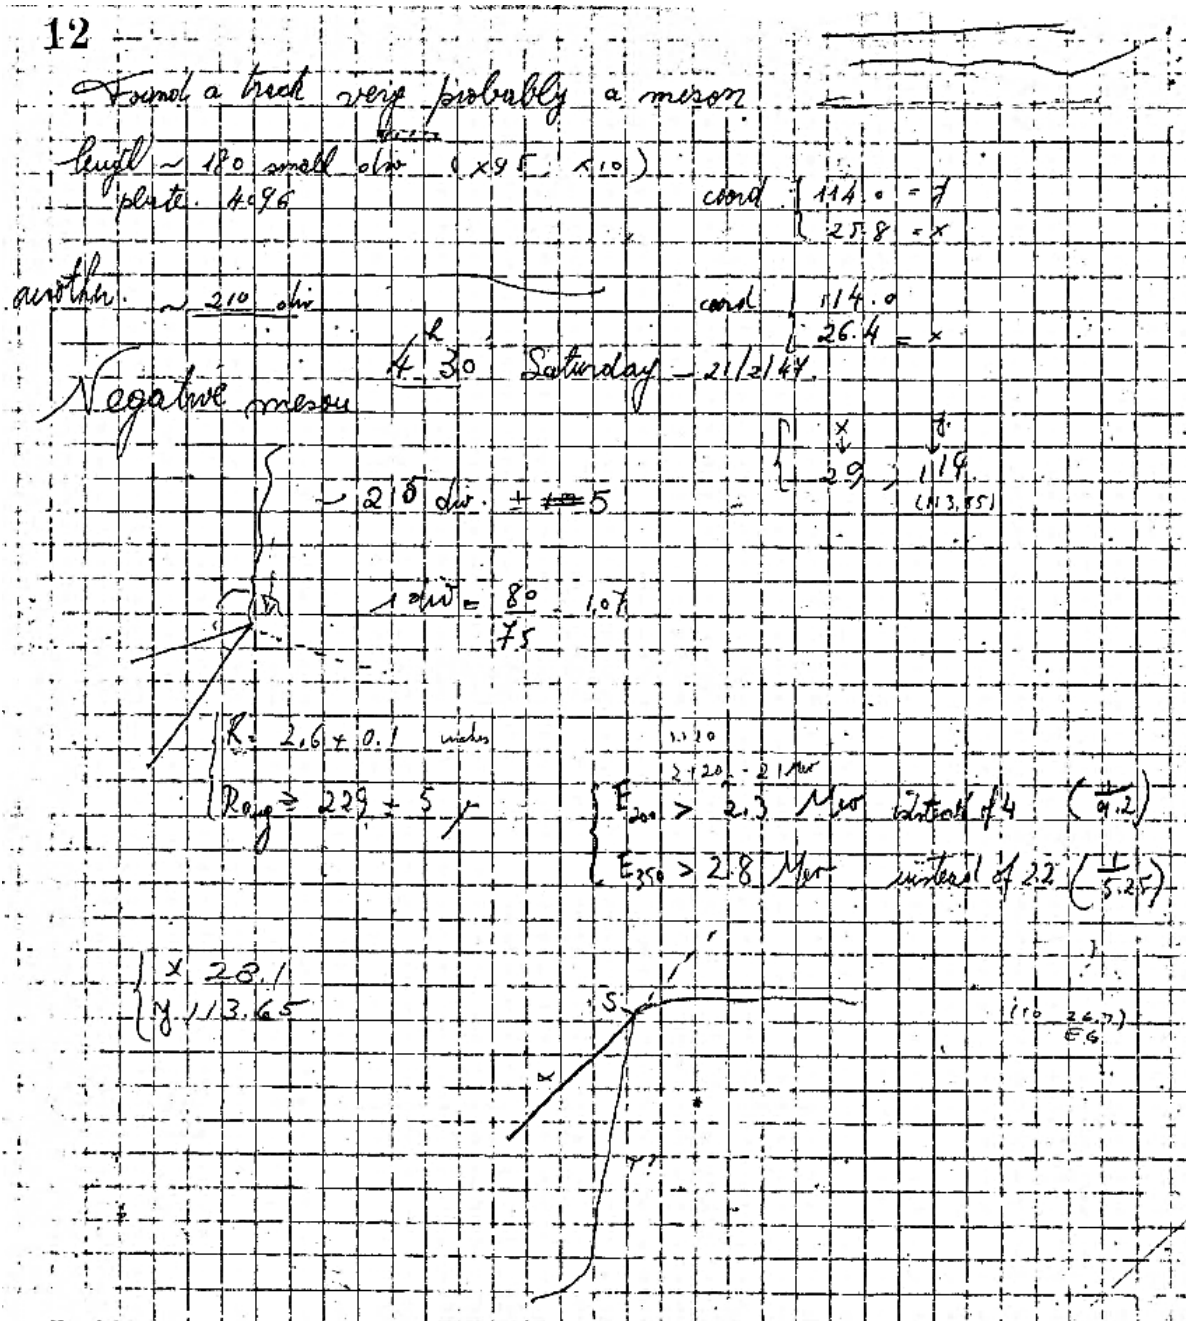 12
Found a track very probably a meson
length ~ 180 small div (x95, x10)
plate. 4096
coord { 114.0 = y
25.8 = x
another. ~ 210 div
coord { 114.0
26.4 = x
4h 30 Saturday – 21/2/47.
Negative meson
x y
29, 114.
(113,85)
~ 215 div. ± 5
1 div = 80/75 = 1,07
R = 2.6 ± 0.1 inches
Rang ≥ 229 ± 5 μ
E200 > 2.3 Mev instead of 4 (1/9.2)
E350 > 2.8 Mev instead of 22 (1/5.25)
x 28.1
y 113.65
S